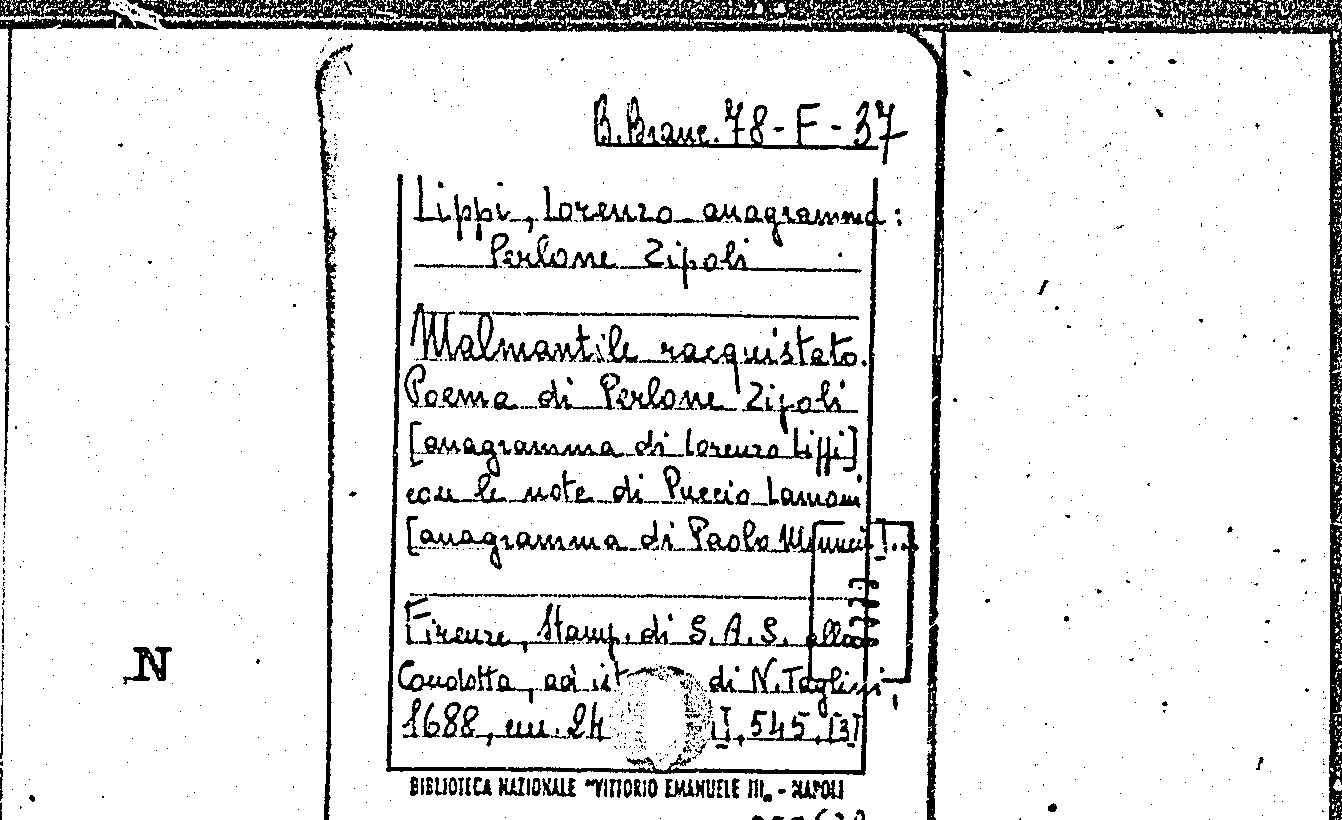 B. Branc. 78-F-37
Lippi, Lorenzo anagramma:
Perlone Zipoli
Malmantile racquistato.
Poema di Perlone Zipoli
[anagramma di Lorenzo Lippi]
con le note di Puccio Lamoni
[anagramma di Paolo Minucci]...
Firenze, Stamp. di S.A.S. alla
Condotta, ad ist di N. Taglini,
1688, cm. 24 ], 545, [3]
BIBLIOTECA NAZIONALE "VITTORIO EMANUELE III" - NAPOLI
N